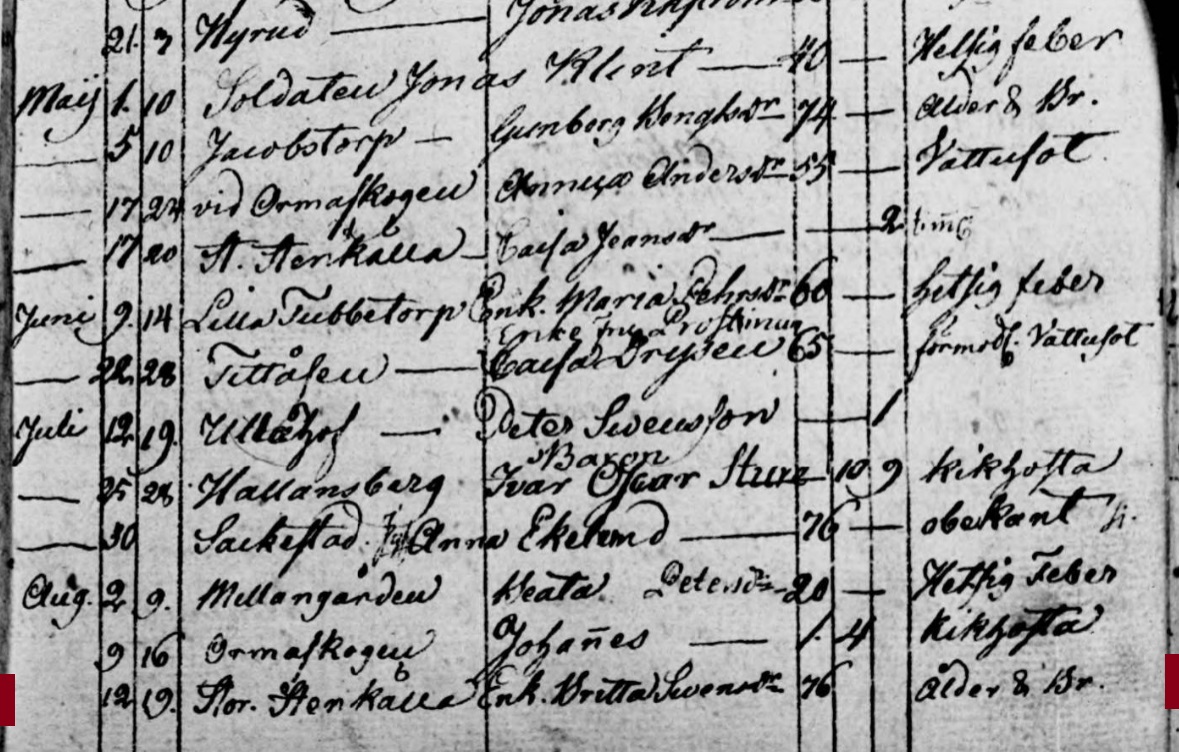 21. 3 Nyrud — Jonas
Maij 1. 10 Soldaten Jonas Klint — 40 — Hetsig feber
— 5 10 Jacobstorp — Gunborg Bengtsdr 74 — ålder & Br.
— 17 24 vid Ormaskogen Annica Andersdr 55 — Vattusot
— 17 20 St. Stenkalla — Caisa Jeansdr — — 2 tim̃
Juni 9. 14 Lilla Tubbetorp Enk. Maria Pehrsdr 60 — hetsig feber
Enke Fru Prostinna
— 22 28 Tittåsen — Caisa Drysen 65 — förmodl. Vattusot
Juli 12 19. Ullåhof — Peter Swensson — 1
Baron
— 25 28 Hallansberg Ivar Oscar Sture — 10 9 kikhosta
— 30 Sackestad. Anna Ekelund — 76 — obekant
Aug. 2 9. Mellangården Beata Petersdr 20 — Hetsig Feber
9 16 Ormaskogen Johañes — 1. 4 kikhosta
12 19. Stor. Stenkälla Enk. Britta Swensdr 76 ålder & Br.